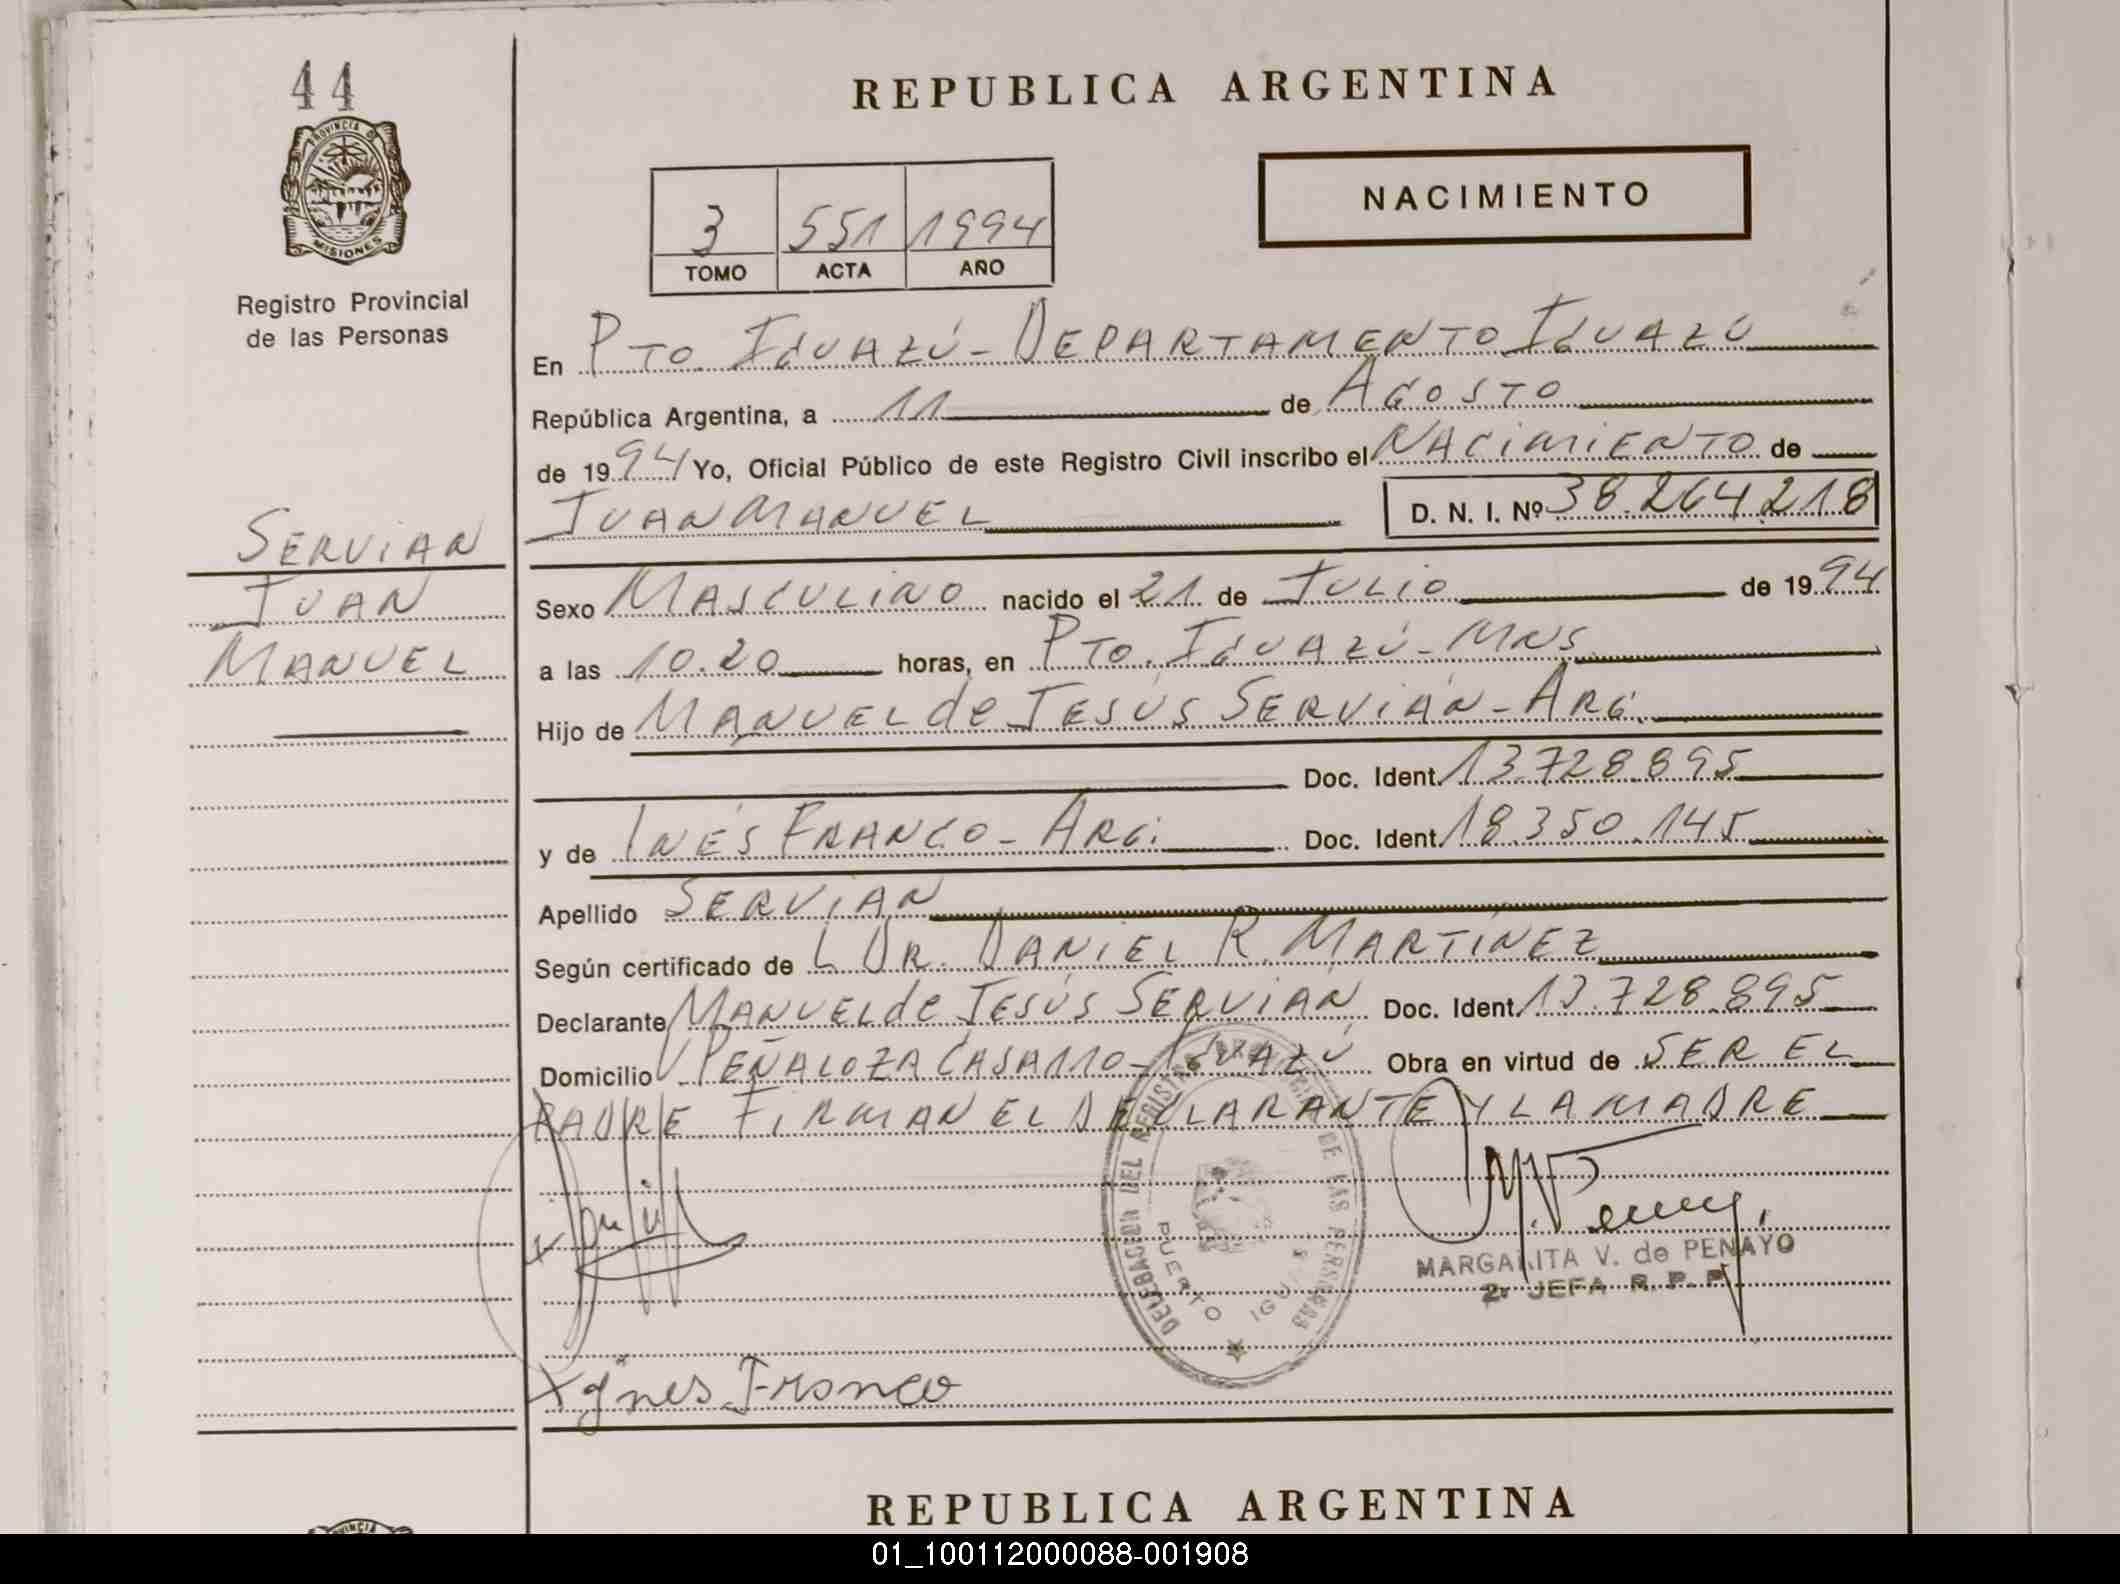 44
REPUBLICA ARGENTINA
PROVINCIA D
MISIONES
Registro Provincial
de las Personas
NACIMIENTO
3 551 1994
TOMO ACTA AÑO
En PTO. IGUAZÚ - DEPARTAMENTO IGUAZÚ
República Argentina, a 11 de AGOSTO
de 1994 Yo, Oficial Público de este Registro Civil inscribo el NACIMIENTO de
JUAN MANUEL D. N. I. Nº 38.264.218
SERVIAN
JUAN
MANUEL
Sexo MASCULINO nacido el 21 de JULIO de 1994
a las 10.20 horas, en PTO. IGUAZÚ - MNS
Hijo de MANUEL de JESÚS SERVIÁN - ARG.
Doc. Ident. 13.728.895
y de INÉS FRANCO - ARG. Doc. Ident. 18.350.145
Apellido SERVIAN
Según certificado de L DR. DANIEL R. MARTÍNEZ
Declarante MANUEL de JESÚS SERVIÁN Doc. Ident. 13.728.895
Domicilio Vº PEÑALOZA CASA 110 - IGUAZÚ Obra en virtud de SER EL
PADRE FIRMAN EL DECLARANTE Y LA MADRE
DELEGACION DEL REGISTRO PROVINCIAL DE LAS PERSONAS
PUERTO IGUAZU
MARGARITA V. de PENAYO
2º JEFA R. P. P.
X Ignes Franco
REPUBLICA ARGENTINA
PROVINCIA
01_100112000088-001908